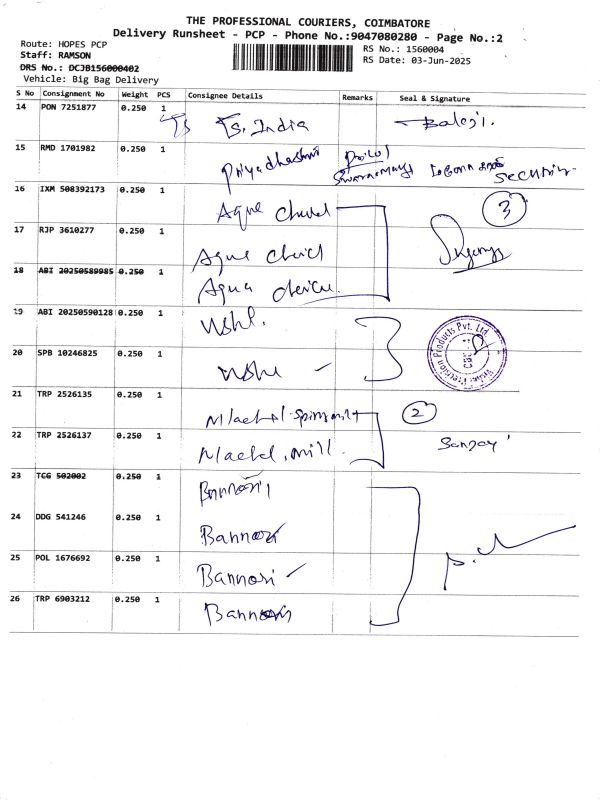 THE PROFESSIONAL COURIERS, COIMBATORE
Delivery Runsheet - PCP - Phone No.:9047080280 - Page No.:2
Route: HOPES PCP
RS No.: 1560004
Staff: RAMSON
RS Date: 03-Jun-2025
DRS No.: DCJB156000402
Vehicle: Big Bag Delivery
S No Consignment No Weight PCS Consignee Details Remarks Seal & Signature
14 PON 7251877 0.250 1 Ts Ts. India Balaji.
15 RMD 1701982 0.250 1 Priyadharshni Security
16 IXM 508392173 0.250 1 Aqua 3
17 RJP 3610277 0.250 1 Aqua
18 ABI 20250589985 0.250 1 Aqua
19 ABI 20250590128 0.250 1
20 SPB 10246825 0.250 1
Precision Products Pvt. Ltd.
21 TRP 2526135 0.250 1 2
22 TRP 2526137 0.250 1 mill. Sanjay
23 TCG 502002 0.250 1 Bannari
24 DDG 541246 0.250 1 Bannari
25 POL 1676692 0.250 1 Bannari
26 TRP 6903212 0.250 1 Bannari